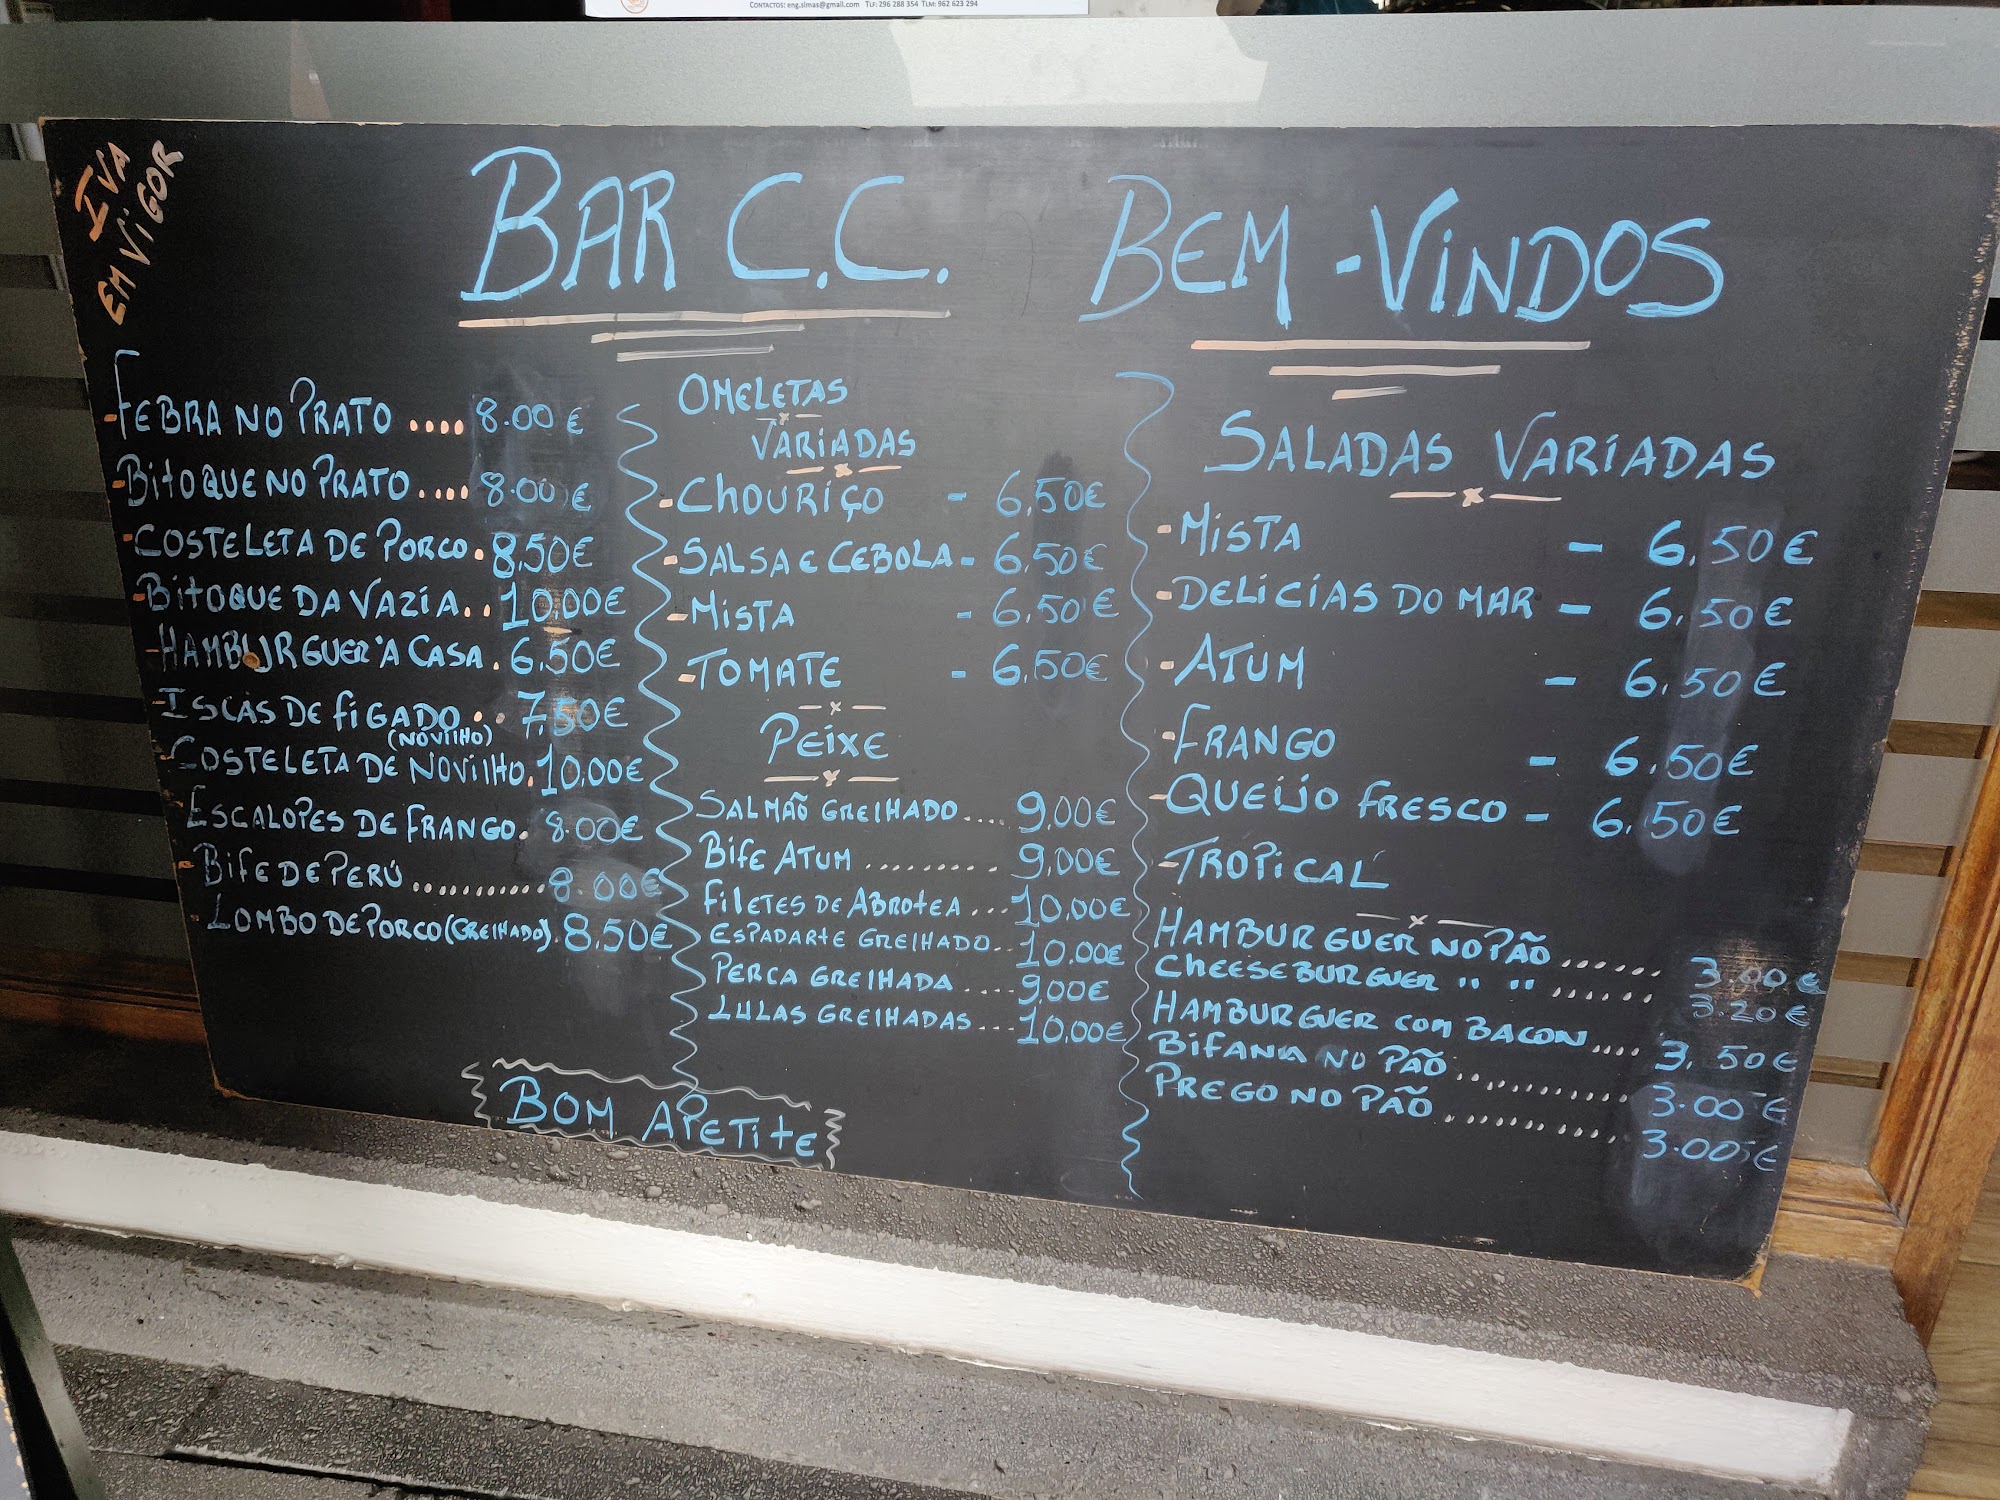 CONTACTOS: eng.simas@gmail.com TLF: 296 288 354 TLM: 962 623 294
IVA
EM VIGOR
BAR C.C.
BEM-VINDOS
-FEBRA NO PRATO .... 8.00€
-BITOQUE NO PRATO .... 8.00€
-COSTELETA DE PORCO . 8,50€
-BITOQUE DA VAZIA .. 10.00€
-HAMBURGUER À CASA . 6,50€
-ISCAS DE FIGADO ... 7,50€
(NOVILHO)
-COSTELETA DE NOVILHO . 10,00€
-ESCALOPES DE FRANGO . 8.00€
-BIFE DE PERÚ ........... 8.00€
-LOMBO DE PORCO (GRELHADO) . 8,50€
OMELETAS
VARIADAS
-CHOURIÇO - 6,50€
-SALSA E CEBOLA - 6,50€
-MISTA - 6,50€
-TOMATE - 6,50€
PEIXE
SALMÃO GRELHADO .... 9,00€
BIFE ATUM ........ 9,00€
FILETES DE ABROTEA ... 10,00€
ESPADARTE GRELHADO .. 10,00€
PERCA GRELHADA .... 9,00€
LULAS GRELHADAS ... 10,00€
SALADAS VARIADAS
-MISTA - 6,50€
-DELICÍAS DO MAR - 6,50€
-ATUM - 6,50€
-FRANGO - 6,50€
-QUEIJO FRESCO - 6,50€
-TROPICAL
HAMBURGUER NO PÃO ...... 3.00€
CHEESEBURGUER " " ...... 3.20€
HAMBURGUER COM BACON .... 3,50€
BIFANA NO PÃO ........... 3.00€
PREGO NO PÃO ........... 3.00€
BOM APETITE